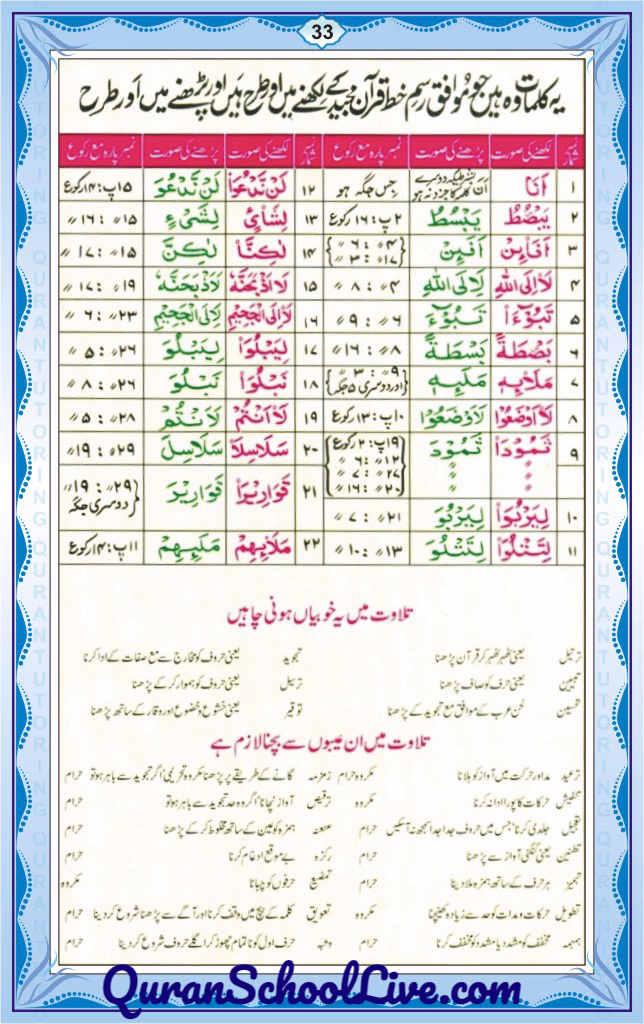 33
یہ کلمات وہ ہیں جو موافق رسم خط قرآن مجید کے لکھنے میں اور طرح ہیں اور پڑھنے میں اور طرح
نمبر شمار لکھنے کی صورت پڑھنے کی صورت نمبر پارہ مع رکوع نمبر شمار لکھنے کی صورت پڑھنے کی صورت نمبر پارہ مع رکوع
۱ اَنَا اَنَ جس جگہ ہو ۱۲ لَنْ نَّدْعُوَا۟ لَنْ نَّدْعُوَ ۱۵پ: ۱۴رکوع
۲ يَبْصُۜطُ يَبْسُطُ ۲پ: ۱۶ رکوع ۱۳ لِشَاىْءٍ لِشَىْءٍ ۱۵〃: ۱۶〃
۳ اَفَا۟ئِنْ اَفَئِنْ ۴〃: ۶〃 ۱۷〃: ۳〃 ۱۴ لٰكِنَّا۠ لٰكِنَّ ۱۵〃: ۱۷〃
۴ لَا۟اِلَى اللّٰهِ لَاِلَى اللّٰهِ ۴〃: ۸〃 ۱۵ لَا۟اَذْبَحَنَّهٗ لَاَذْبَحَنَّهٗ ۱۹〃: ۱۷〃
۵ تَبُوْٓءَا۟ تَبُوْٓءَ ۶〃: ۹〃 ۱۶ لَا۟اِلَى الْجَحِيْمِ لَاِلَى الْجَحِيْمِ ۲۳〃: ۶〃
۶ بَصْۜطَةً بَسْطَةً ۸〃: ۱۶〃 ۱۷ لِيَبْلُوَا۟ لِيَبْلُوَ ۲۶〃: ۵〃
۷ مَلَا۟ئِهٖ مَلَئِهٖ ۹〃: ۳〃 اور دوسری ۵ جگہ ۱۸ نَبْلُوَا۟ نَبْلُوَ ۲۶〃: ۸〃
۸ لَا۟اَوْضَعُوْا لَاَوْضَعُوْا ۱۰پ: ۱۳رکوع ۱۹ لَا۟اَنْتُمْ لَاَنْتُمْ ۲۸〃: ۵〃
۹ ثَمُوْدَا۟ ثَمُوْدَ ۱۹پ: ۲رکوع ۲۰ سَلَاسِلَا۟ سَلَاسِلَ ۲۹〃: ۱۹〃
〃 〃 ۱۲〃: ۶〃
〃 〃 ۲۷〃: ۷〃 ۲۱ قَوَارِيْرَا۟ قَوَارِيْرَ ۲۹〃: ۱۹〃 دوسری جگہ
〃 〃 ۲۰〃: ۱۶〃
۱۰ لِيَرْبُوَا۟ لِيَرْبُوَ ۲۱〃: ۷〃
۱۱ لِتَتْلُوَا۟ لِتَتْلُوَ ۱۳〃: ۱۰〃 ۲۲ مَلَا۟ئِهِمْ مَلَئِهِمْ ۱۱پ: ۱۴رکوع
تلاوت میں یہ خوبیاں ہونی چاہیں
ترتیل یعنی ٹھہر ٹھہر کر قرآن پڑھنا تجوید یعنی حروف کو مخارج سے مع صفات کے ادا کرنا
تبیین یعنی حرف کو صاف پڑھنا ترسیل یعنی حروف کو ہموار کر کے پڑھنا
تحسین لحن عرب کے موافق مع تجوید کے پڑھنا توقیر یعنی خشوع و خضوع اور وقار کے ساتھ پڑھنا
تلاوت میں ان عیبوں سے بچنا لازم ہے
ترعید مد اور حرکت میں آواز کو ہلانا مکروہ حرام زمزمہ گانے کے طریقے پر پڑھنا مکروہ تحریمی اگر تجوید سے باہر ہو تو حرام
تنفیش حرکات کا پورا ادا نہ کرنا مکروہ ترقیص آواز نچانا اگر وہ حد تجوید سے باہر ہو تو حرام
تعجیل جلدی کرنا جس میں حروف جدا جدا سمجھ نہ آسکیں حرام عنعنہ ہمزہ کو عین کے ساتھ مخلوط کر کے پڑھنا حرام
تطنین یعنی گنگنی آواز سے پڑھنا حرام رکزہ بے موقع ادغام کرنا حرام
ہر حرف کے ساتھ ہمزہ ملا دینا حرام تمضیغ حرفوں کو چبانا مکروہ
تطویل حرکات و مدات کو حد سے زیادہ کھینچنا مکروہ تعویق کلمہ کے بیچ میں وقف کرنا اور آگے سے پڑھنا شروع کر دینا حرام
ہمہمہ مخفف کو مشدد یا مشدد کو مخفف کرنا حرام وثبہ حرف اول کو نا تمام چھوڑ کر اگلے حروف شروع کر دینا حرام
QuranSchoolLive.com